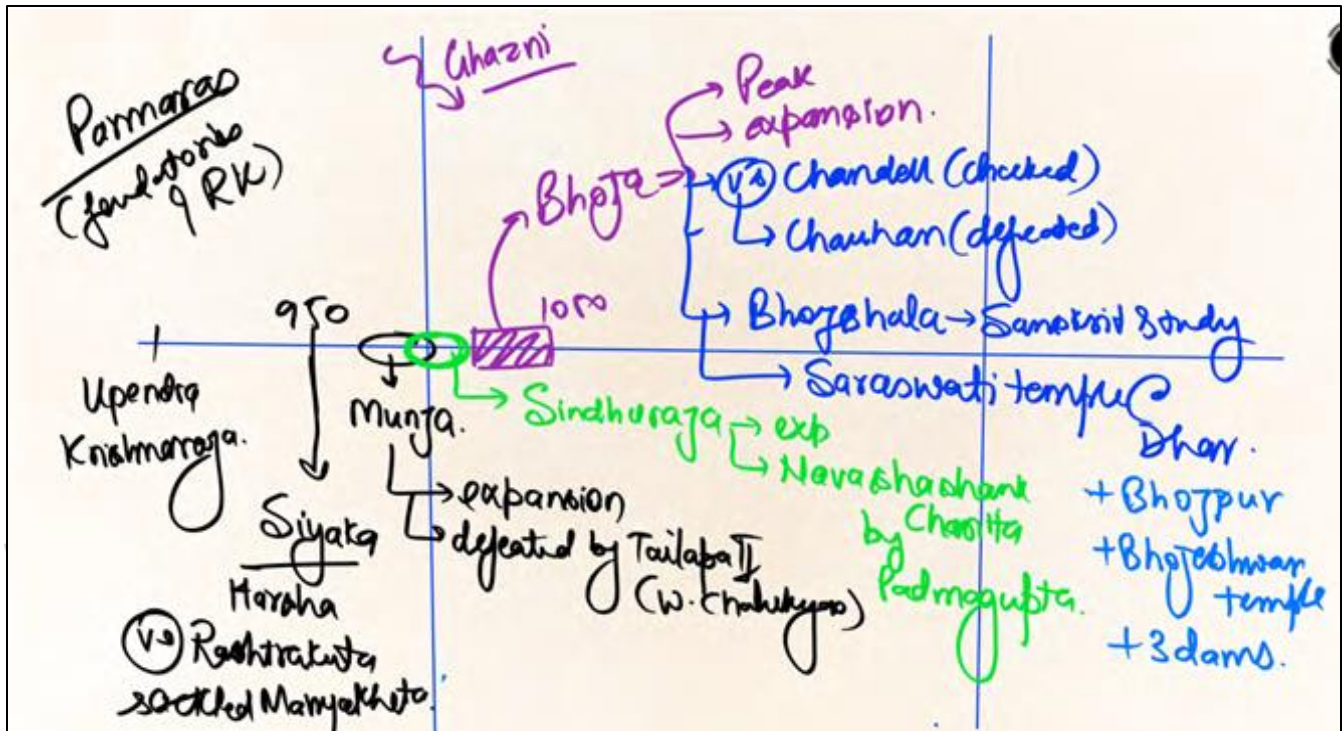 Parmaras
(feudatories
of RK)
Ghazni
Peak
expansion.
Bhoja
Vs Chandell (checked)
Chauhan (defeated)
Bhojshala → Sanskrit study
Saraswati temple
Dhar.
+ Bhojpur
+ Bhojeshwar
temple
+ 3 dams.
950
Upendra
Krishnaraja.
Siyaka
Harsha
Vs Rashtrakuta
sacked Manyakheta.
Munja.
expansion
defeated by Tailapa II
(W. Chalukyas)
Sindhuraja → exp
Navashashank
Charitta
by
Padmagupta.